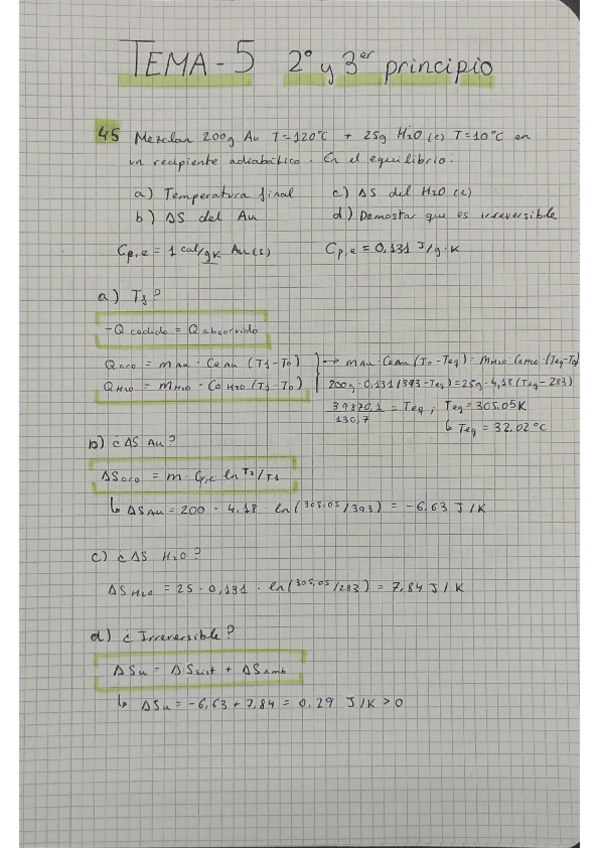 TEMA-5 2º y 3er principio
45 Mezclan 200g Au T=120ºC + 25g H2O(l) T=10ºC en
un recipiente adiabático. En el equilibrio:
a) Temperatura final c) ΔS del H2O(l)
b) ΔS del Au d) Demostar que es irreversible
Cp,e = 1 cal/gK Au(s) Cp,e = 0,131 J/g·K
a) Tf?
-Q cedido = Q absorvido
Qoro = mAu · CeAu (Tf-T0) → mAu · CeAu (T0-Teq) = mH2O · CeH2O · (Teq-T0)
QH2O = mH2O · CeH2O (Tf-T0) 200g · 0,131 (393-Teq) = 25g · 4,18 (Teq-283)
39870,1/130,7 = Teq ; Teq = 305.05K
↳ Teq = 32.02ºC
b) ¿ΔS Au?
ΔSoro = m · Cp,e ln T2/T1
↳ ΔSAu = 200 · 4,18 · ln(305,05/393) = -6,63 J/K
c) ¿ΔS H2O?
ΔSH2O = 25 · 0,131 · ln(305,05/283) = 7,84 J/K
d) ¿Irreversible?
ΔSu = ΔSsist + ΔSamb
↳ ΔSu = -6,63 + 7,84 = 0,29 J/K > 0